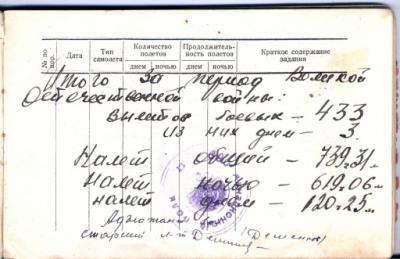 № по пор.
Дата
Тип самолета
Количество полетов
днем
ночью
Продолжитель­ность полетов
днем
ночью
Краткое содержание задания
Итого за период Великой
Отечественной войны:
Вылетов боевых – 433
из них днем – 3.
Налет общий – 739ч.31м
Налет ночью – 619ч.06м
налет днем – 120ч.25м
Адъютант
старший л-т